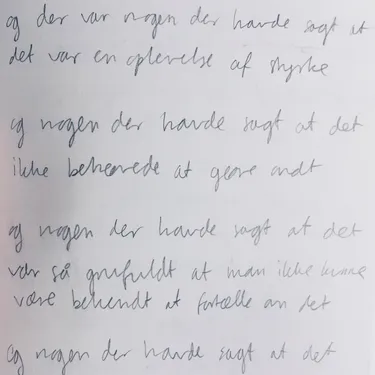 og der var nogen der havde sagt at
det var en oplevelse af styrke
og nogen der havde sagt at det
ikke behøvede at gøre ondt
og nogen der havde sagt at det
var så grufuldt at man ikke kunne
være bekendt at fortælle om det
og nogen der havde sagt at det